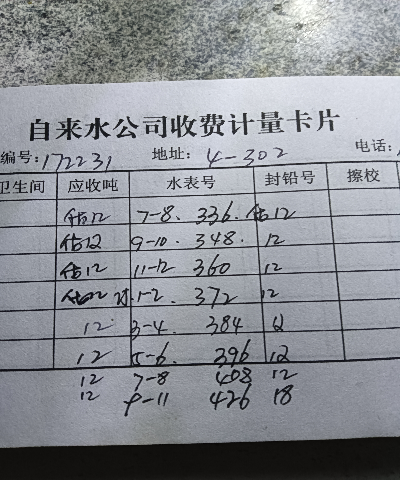 自来水公司收费计量卡片
编号:172231 地址: 4-302 电话:
卫生间 应收吨 水表号 封铅号 擦校
估12 7-8. 336. 估12
估12 9-10. 348. 12
估12 11-12 360 12
估12 1-2. 372 12
12 3-4. 384 12
12 5-6. 396 12
12 7-8 408 12
12 9-11 426 18